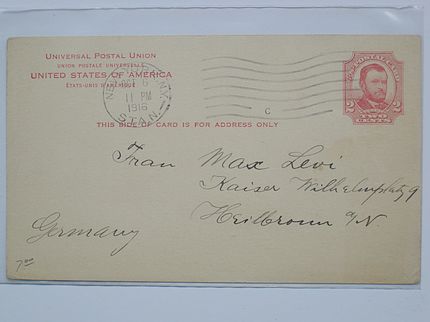 UNIVERSAL POSTAL UNION
UNION POSTALE UNIVERSELLE
UNITED STATES OF AMERICA
ÉTATS-UNIS D'AMÉRIQUE
N.Y.
OCT 6
11 PM
1916
STA. N.
C
POSTAL CARD
2 2
THIS SIDE OF CARD IS FOR ADDRESS ONLY
Frau Max Levi
Kaiser Wilhelmplatz 9
Heilbronn a/N.
Germany
7.00